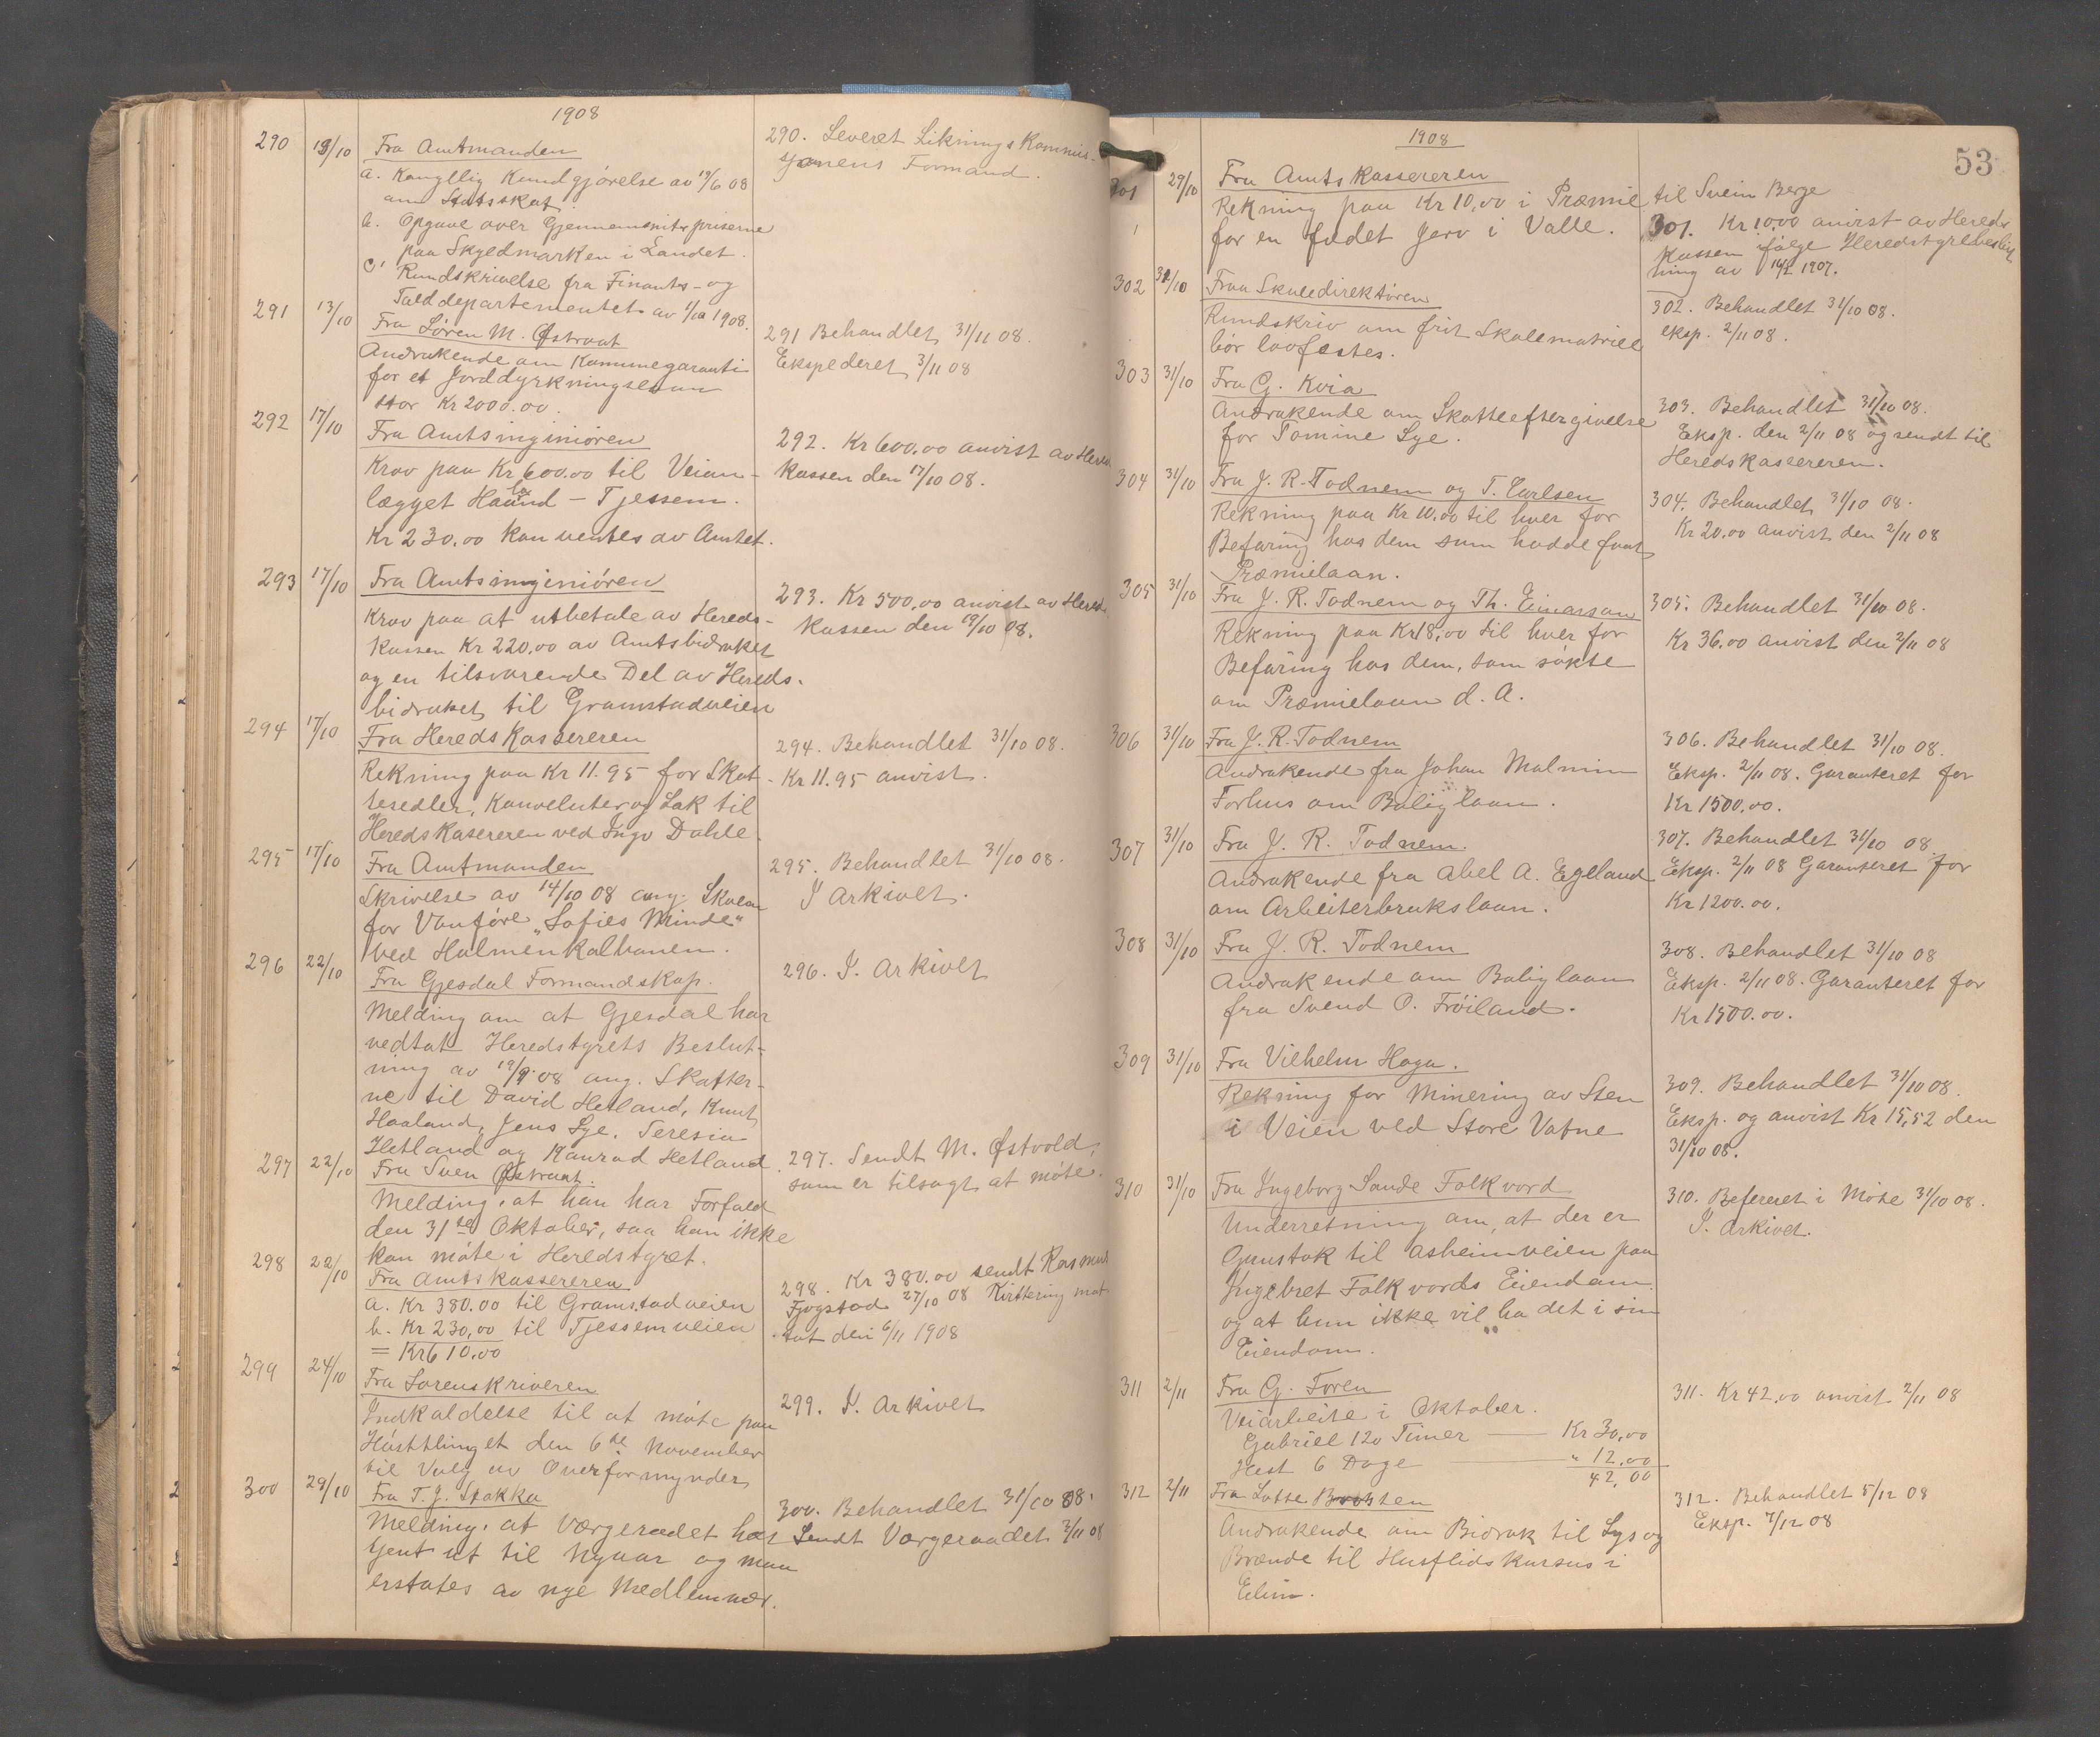 1908
290 13/10 Fra Amtmanden
a. Kongelig Kundgjørelse av 13/6 08
om Statsskat.
b. Opgave over Gjennemsnitspriserne
paa Skyldmarken i Landet.
c. Rundskrivelse fra Finants- og
Tolddepartementet av 1/10 1908.
290. Leveret Liknings Kommis-
sjonens Formand.
291 13/10 Fra Søren M. Østraat
Andrakende om Kommunegaranti
for et Jorddyrkningslaan
stor Kr 2000.00.
291 Behandlet 31/11 08.
Ekspederet 3/11 08
292 17/10 Fra Amtsingeniøren
Krav paa Kr 600.00 til Veian-
lægget Høland - Tjessem.
Kr 230.00 kan ventes av Amtet.
292. Kr 600.00 anvist av Hereds
kassen den 17/10 08.
293 17/10 Fra Amtsingeniøren
Krav paa at utbetale av Hereds-
kassen Kr 220.00 av Amtsbidraket
og en tilsvarende Del av Hereds-
bidraket til Gramstadveien
293. Kr 500.00 anvist av Hereds
kassen den 19/10 08.
294 17/10 Fra Hereds Kassereren
Rekning paa Kr 11.95 for Skat-
tesedler, Konvoluter og Lak til
Heredskasereren ved Ingv Dahle.
294. Behandlet 31/10 08.
Kr 11.95 anvist.
295 17/10 Fra Amtmanden
Skrivelse av 14/10 08 ang. Skolen
for Vanføre „Sofies Minde"
ved Holmenkolbanen.
295. Behandlet 31/10 08.
I Arkivet.
296 22/10 Fra Gjesdal Formandskap.
Melding om at Gjesdal har
vedtat Heredstyrets Beslut-
ning av 19/9 08 ang. Skatter-
ne til David Hetland, Knut
Haaland, Jens Lye, Seresia
Hetland og Konrad Hetland
296. I. Arkivet
297 22/10 Fra Sven Østraat.
Melding, at han har Forfald
den 31te Oktober, saa han ikke
kan møte i Heredstyret.
297. Sendt M. Østvold,
som er tilsagt at møte.
298 22/10 Fra Amtskassereren
a. Kr 380.00 til Gramstadveien
b. Kr 230,00 til Tjessemveien
= Kr 610.00
298. Kr 380.00 sendt Rasmus
Fjogstad 27/10 08 Kvittering mot
tat den 6/11 1908
299 24/10 Fra Sorenskriveren
Indkaldelse til at møte paa
Høsttinget den 6te November
til Valg av Overformynder
299. I. Arkivet
300 29/10 Fra T. J. Stokka
Melding, at Værgeraadet har
gent ut til Nyaar og maa
erstates av nye Medlemmer.
300. Behandlet 31/10 08.
Sendt Værgeraadet 2/11 08
1908
53
301 29/10 Fra Amtskassereren
Rekning paa Kr 10,00 i Præmie til Svein Berge
for en fældet Jerv i Valle.
301. Kr 10,00 anvist av Hereds
kassen ifølge Heredstyrebeslut
ning av 14/2 1907.
302 31/10 Fraa Skuledirektøren
Rundskriv om frit Skulematriell
bør lovfestes.
302. Behandlet 31/10 08.
eksp. 2/11 08.
303 31/10 Fra G. Kvia
Andrakende om Skatteeftergivelse
for Tomine Lye.
303. Behandlet 31/10 08.
Eksp. den 2/11 08 og sendt til
Heredskassereren.
304 31/10 Fra J. R. Todnem og T. Carlsen
Rekning paa Kr 10.00 til hver for
Befaring hos dem som hadde faat
Præmielaan.
304. Behandlet 31/10 08.
Kr 20.00 anvist den 2/11 08
305 31/10 Fra J. R. Todnem og Th. Einarson
Rekning paa Kr 18,00 til hver for
Befaring hos dem, som søkte
om Præmielaan d. A.
305. Behandlet 31/10 08.
Kr 36.00 anvist den 2/11 08
306 31/10 Fra J. R. Todnem
Andrakende fra Johan Malmin
Forhus om Boliglaan.
306. Behandlet 31/10 08.
Eksp. 2/11 08. Garanteret for
Kr 1500.00.
307 31/10 Fra J. R. Todnem.
Andrakende fra Abel A. Egeland
om Arbeiterbrukslaan.
307. Behandlet 31/10 08.
Eksp. 2/11 08 Garanteret for
Kr 1200.00.
308 31/10 Fra J. R. Todnem
Andrakende om Boliglaan
fra Svend O. Frøiland.
308. Behandlet 31/10 08
Eksp. 2/11 08. Garanteret for
Kr 1500.00.
309 31/10 Fra Vilhelm Haga.
Rekning for Minering av Sten
i Veien ved Store Vatne
309. Behandlet 31/10 08.
Eksp. og anvist Kr 15,52 den
31/10 08.
310 31/10 Fra Ingeborg Sande Folkvord
Underretning om, at der er
Grustak til Asheimveien paa
Ingebret Folkvords Eiendom
og at hun ikke vil ha det i sin
Eiendom.
310. Refereret i Møte 31/10 08.
I. Arkivet.
311 2/11 Fra G. Foren
Veiarbeite i Oktober.
Gabriel 120 Timer — Kr 30,00
Hest 6 Dage — " 12,00
42,00
311. Kr 42.00 anvist 2/11 08
312 2/11 Fra Lotte
Andrakende om Bidrak til Lys og
Brænde til Husflidskursus i
Elim.
312. Behandlet 5/12 08
Eksp. 7/12 08